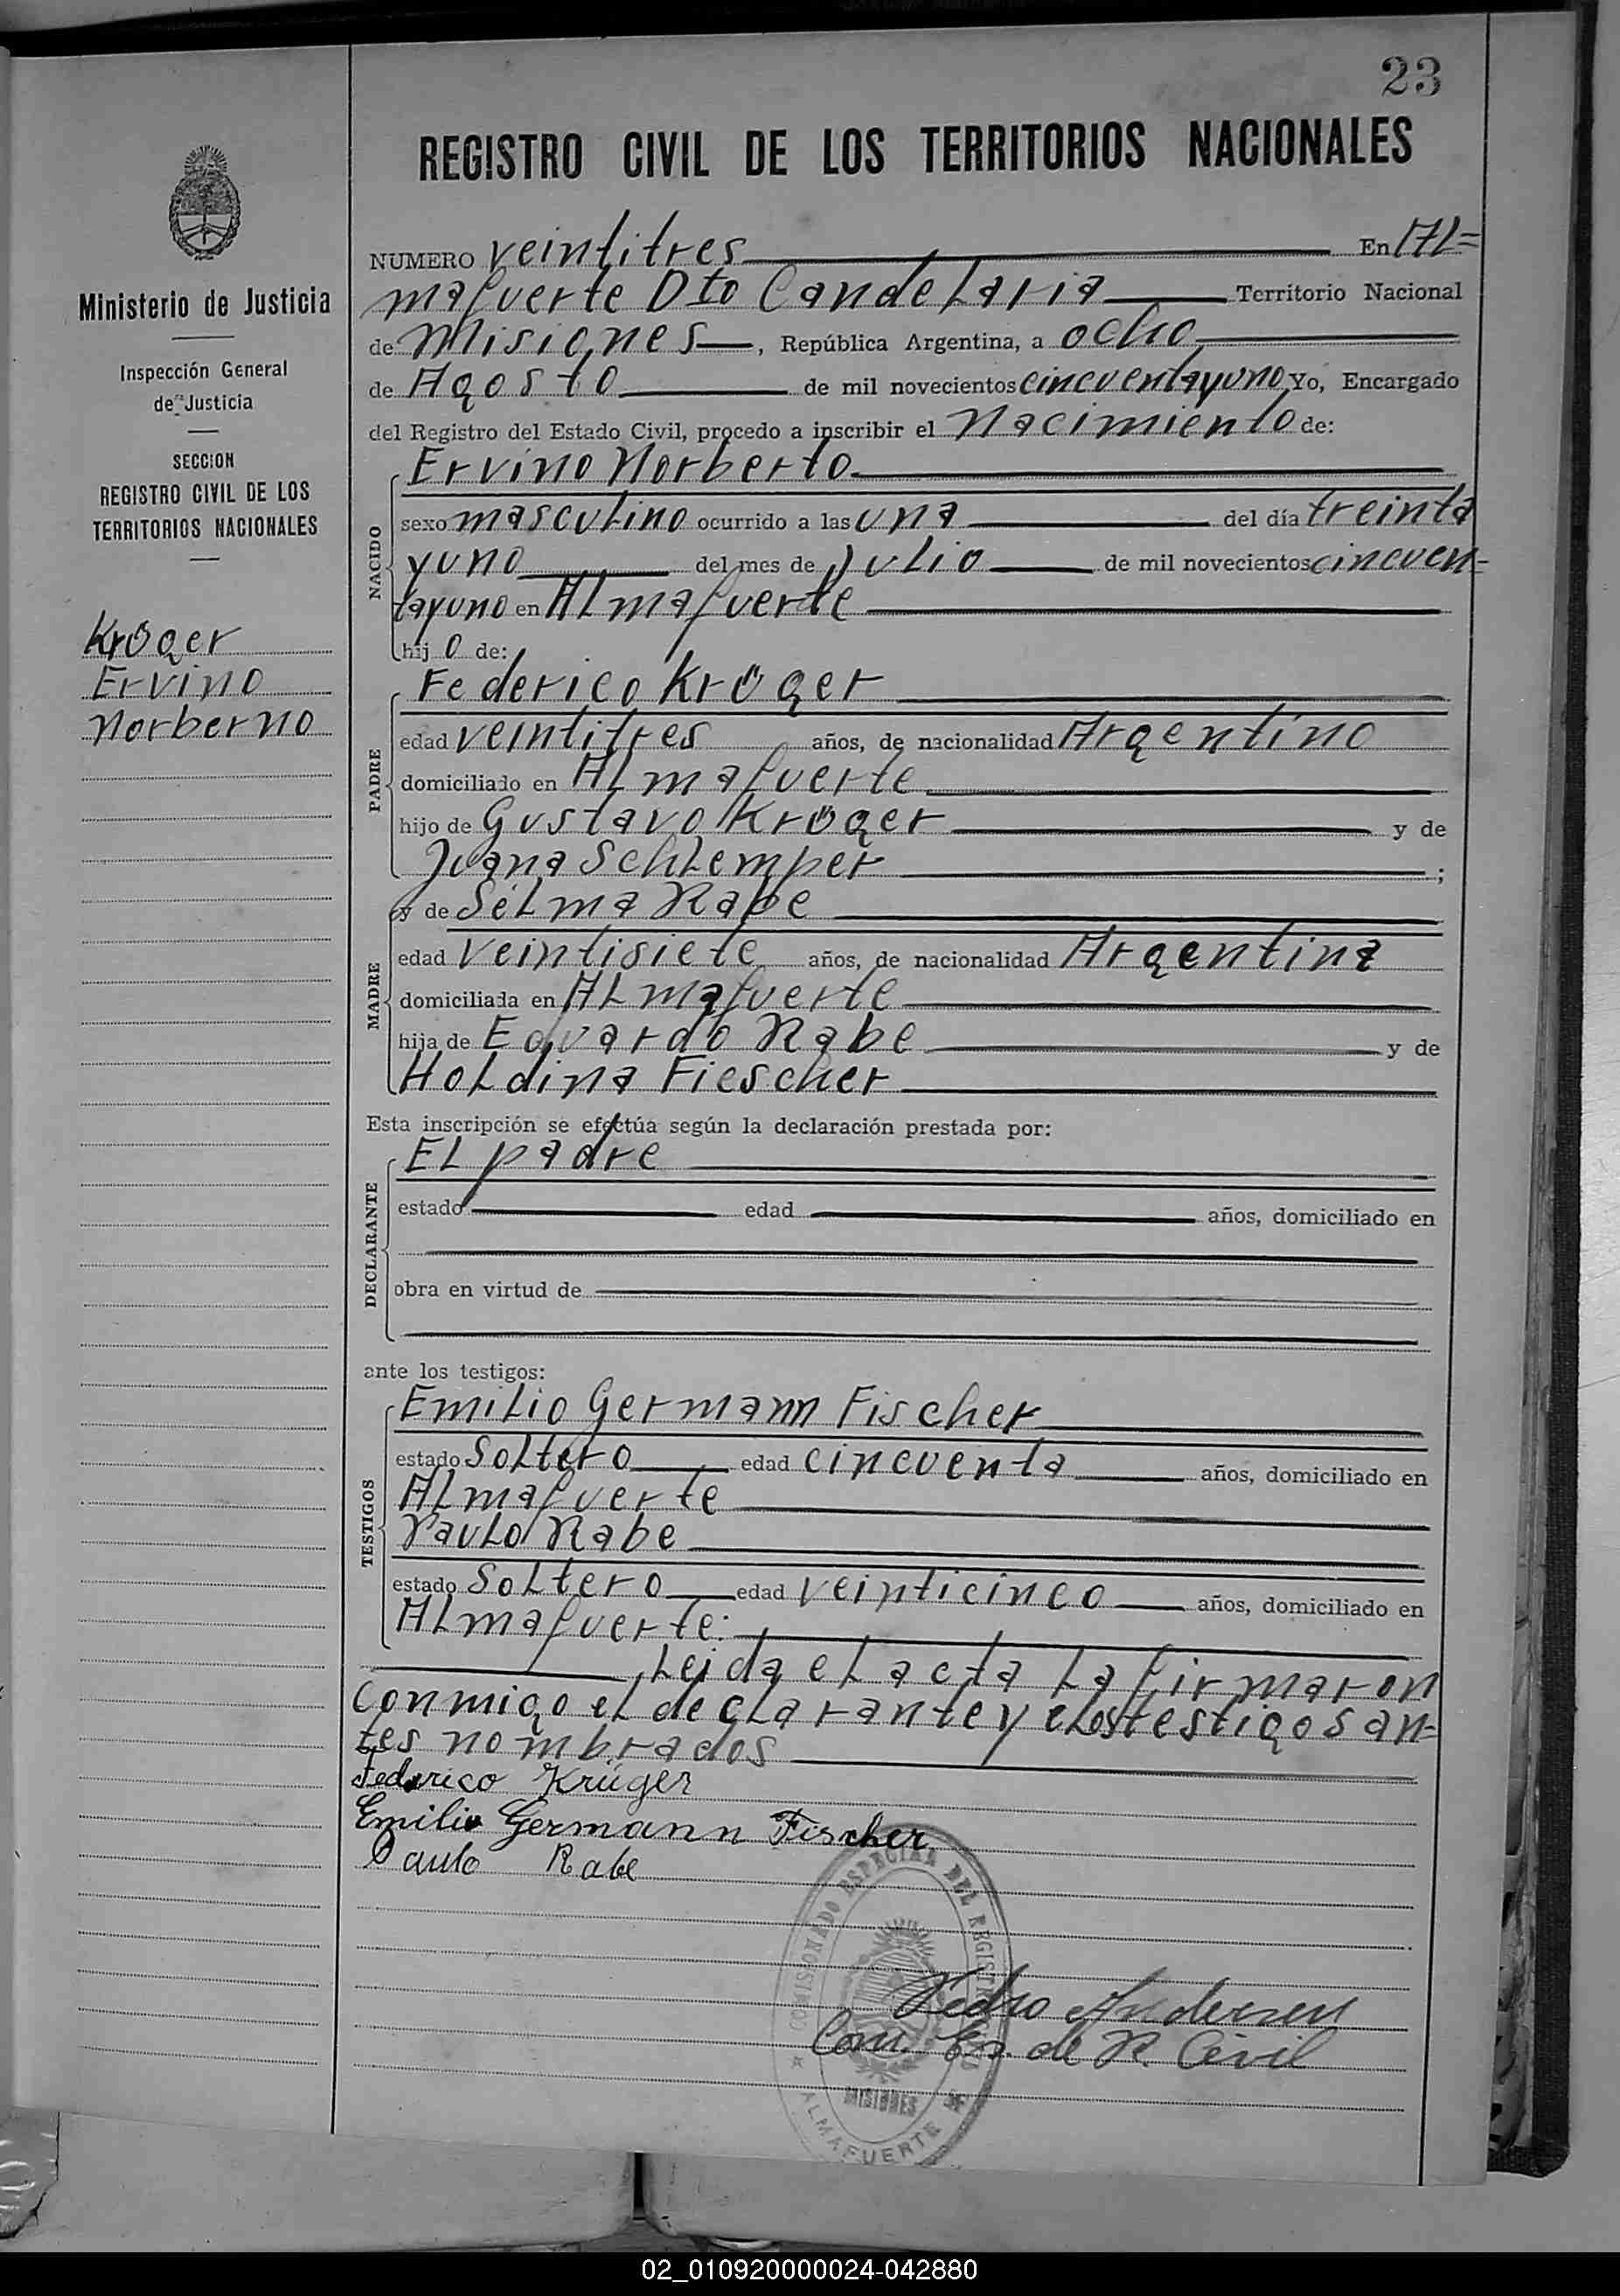 23
REGISTRO CIVIL DE LOS TERRITORIOS NACIONALES
Ministerio de Justicia
Inspección General
de Justicia
SECCION
REGISTRO CIVIL DE LOS
TERRITORIOS NACIONALES
Kröger
Ervino
Norberno
NUMERO veintitres En Al=
mafuerte Dto Candelaria Territorio Nacional
de Misiones, República Argentina, a ocho
de Agosto de mil novecientos cincuentayuno, Yo, Encargado
del Registro del Estado Civil, procedo a inscribir el Nacimiento de:
NACIDO
Ervino Norberto
sexo masculino ocurrido a las una del día treinta
yuno del mes de Julio de mil novecientos cincuen=
tayuno en Almafuerte
hij o de:
PADRE
Federico Kröger
edad veintitres años, de nacionalidad Argentino
domiciliado en Almafuerte
hijo de Gustavo Kröger y de
Juana Schlemper ;
y de Selma Rabe
MADRE
edad veintisiete años, de nacionalidad Argentina
domiciliada en Almafuerte
hija de Eduardo Rabe y de
Holdina Fiescher
Esta inscripción se efectúa según la declaración prestada por:
DECLARANTE
El padre
estado edad años, domiciliado en
obra en virtud de
ante los testigos:
TESTIGOS
Emilio Germann Fischer
estado Soltero edad cincuenta años, domiciliado en
Almafuerte
Paulo Rabe
estado Soltero edad veinticinco años, domiciliado en
Almafuerte:
Leida el acta la firmaron
conmigo el declarante y los testigos an=
tes nombrados
Federico Krüger
Emilio Germann Fischer
Paulo Rabe
COMISIONADO ESPECIAL DEL REGISTRO
MISIONES
ALMAFUERTE
Pedro Andersen
Com. Es. de R. Civil
02_010920000024-042880